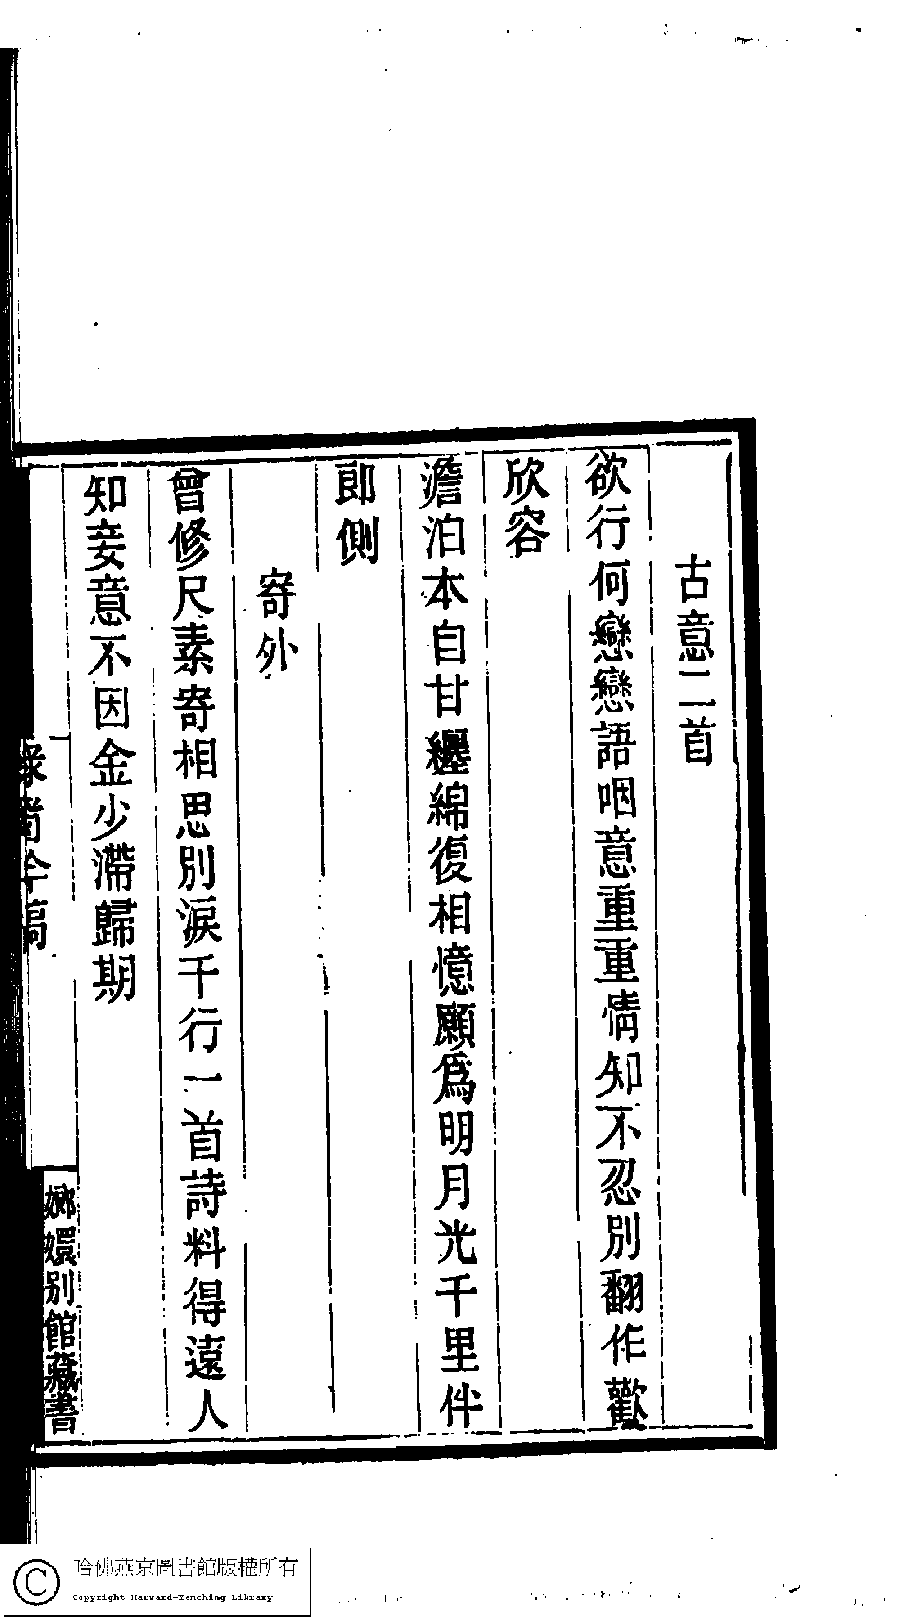 古意二首
欲行何戀戀語咽意重重情知不忍別翻作歡
欣容
澹泊本自甘纏綿復相憶願爲明月光千里伴
郎側
寄外
曾修尺素寄相思別淚千行一首詩料得遠人
知妾意不因金少滯歸期
嫏嬛別館藏書
哈佛燕京圖書館版權所有
Copyright Harvard-Yenching Library